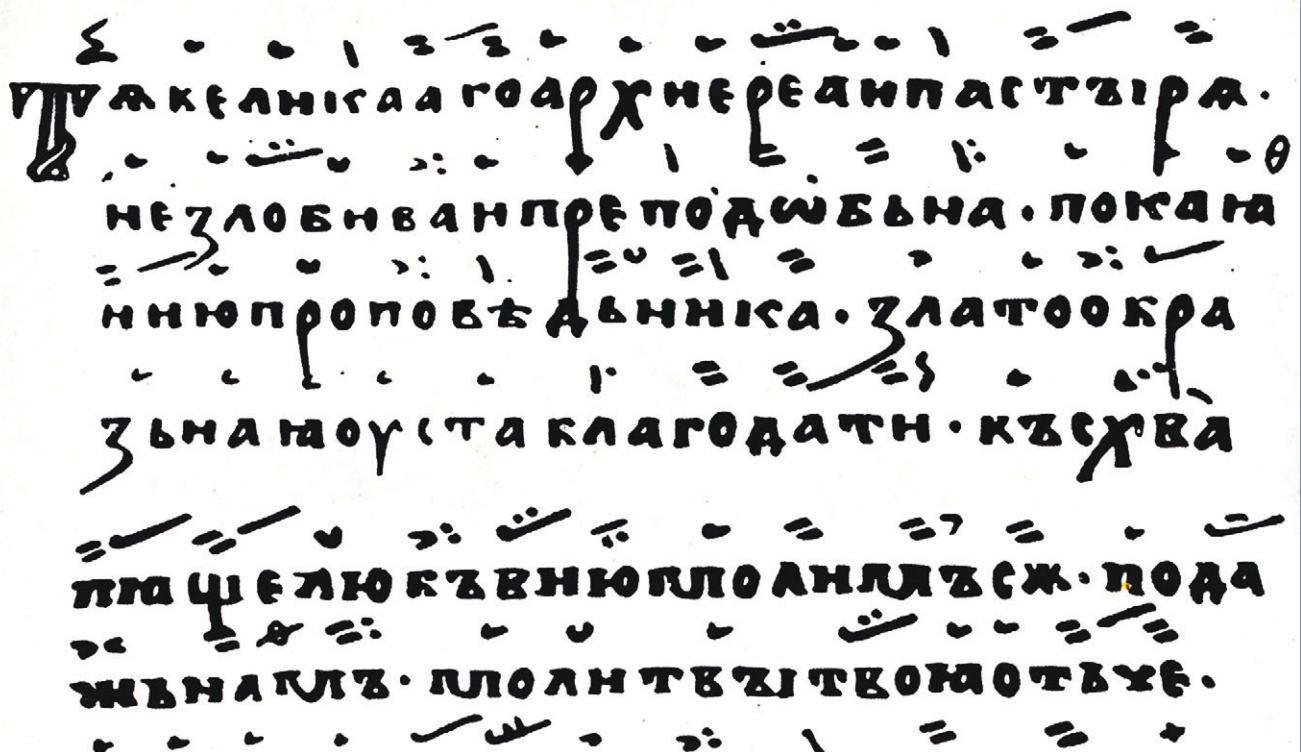 Тѧ великааго архиереа и пастꙑрѧ ·
незлобива и преподѡбьна · покаꙗ
нию проповѣдьника · златоокра
зьнаꙗ оуста благодати · въсхва
лꙗще любъвию помолимъ сѧ · пода
жь намъ · молитвꙑ твоꙗ отьче ·